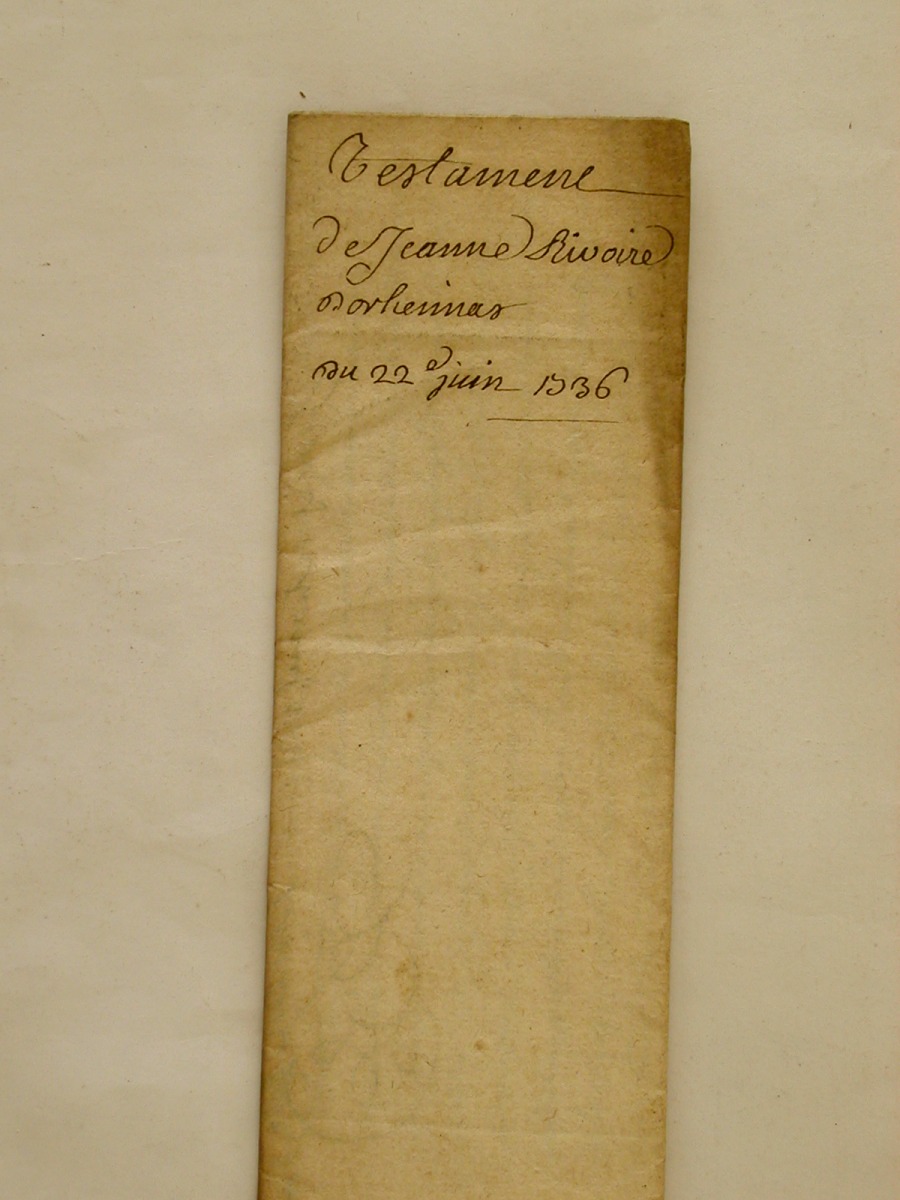 Testament
de Jeanne Rivoire
dorheimas
du 22e juin 1736